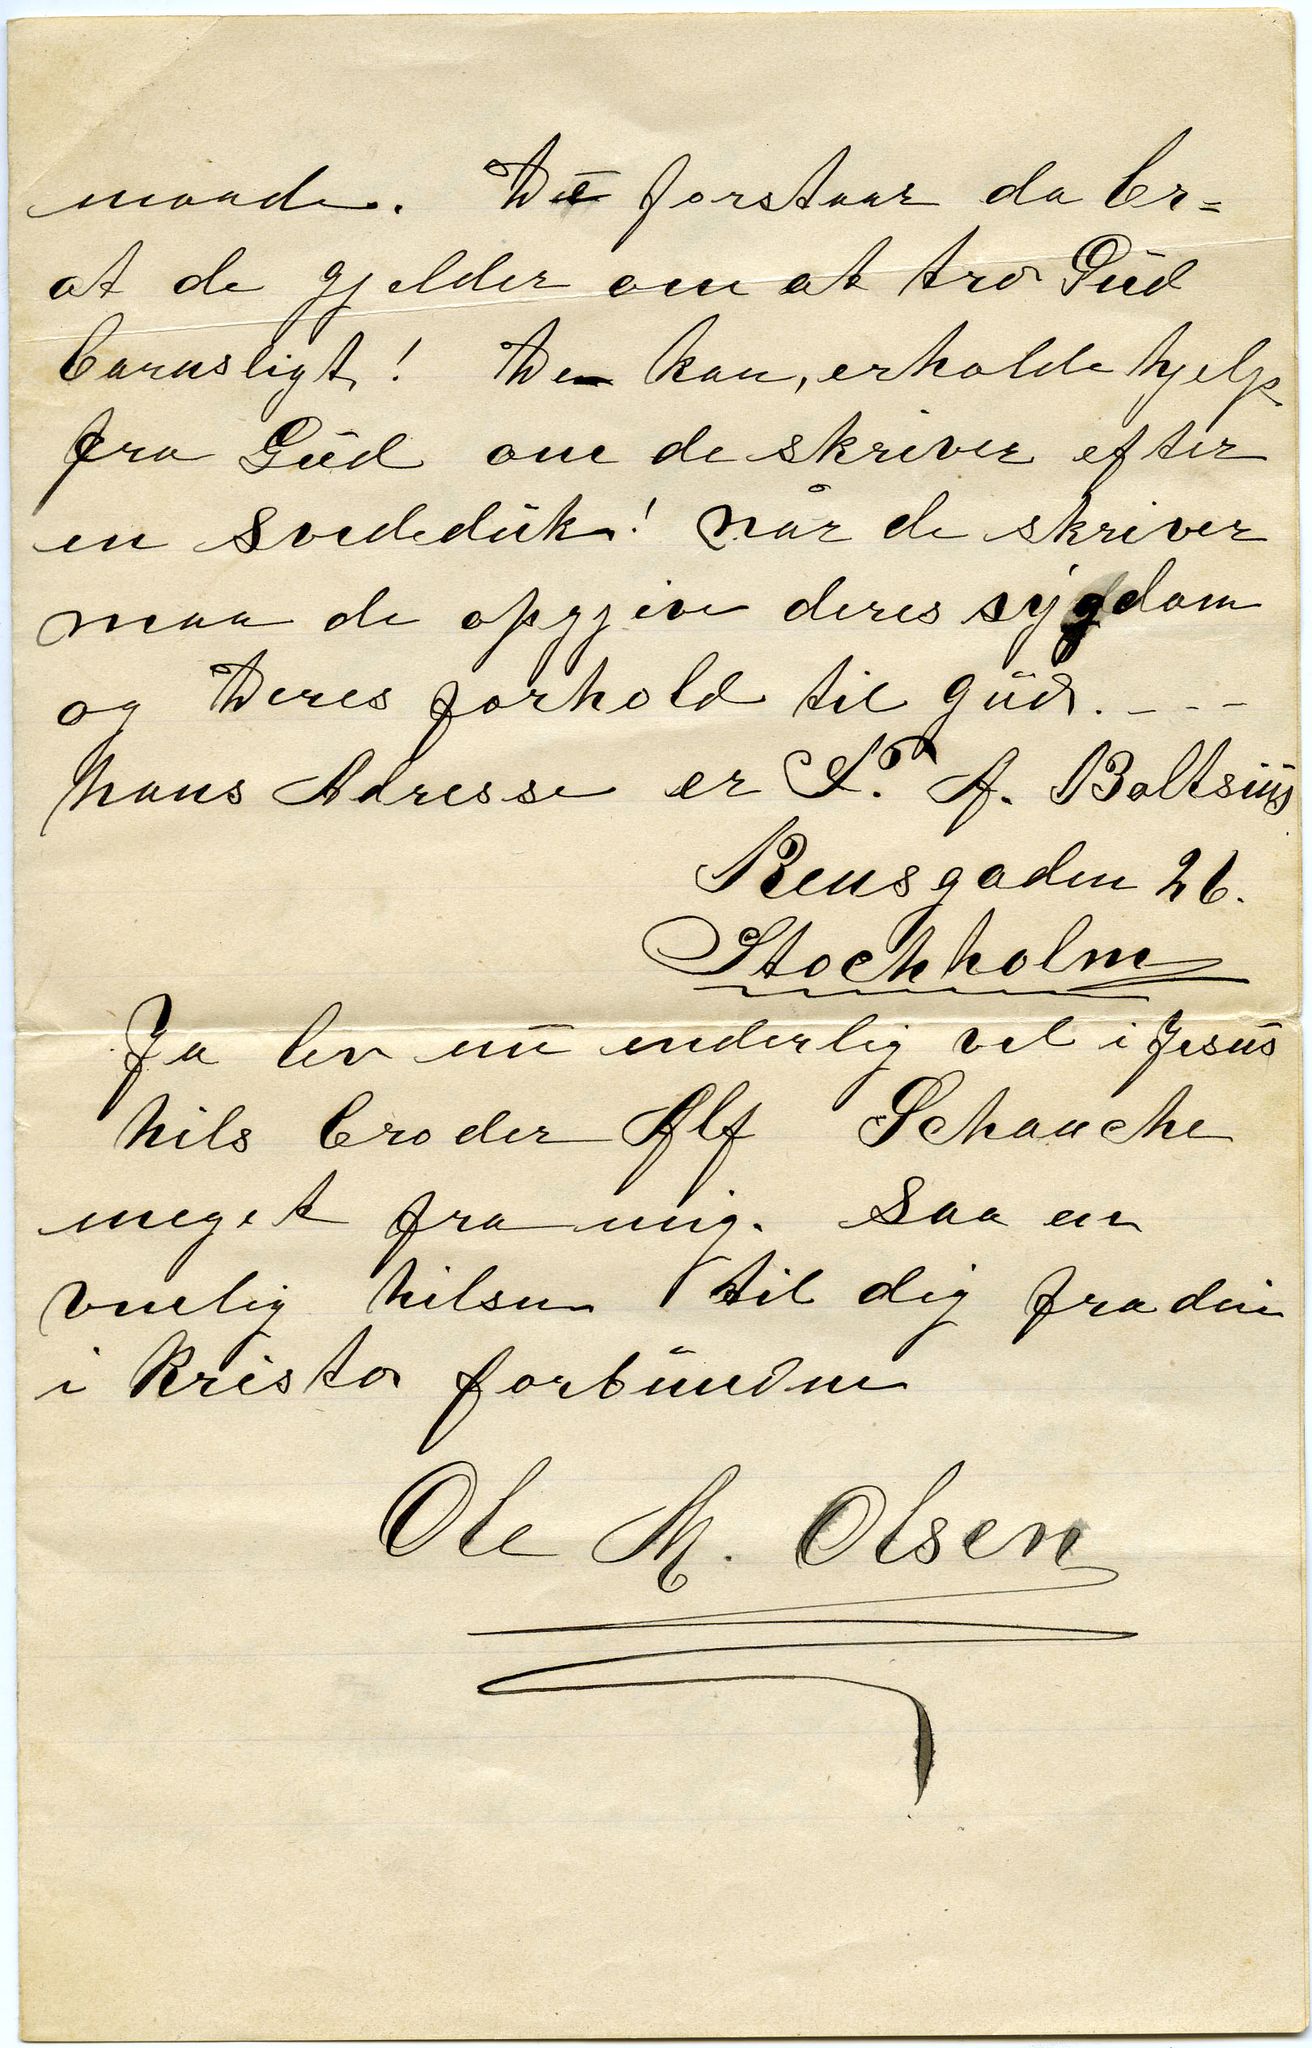 maade. De forstaar da br=
at de gjelder om at tro Gud
barnsligt! De kan, erholde hjelp
fra Gud om de skriver efter
en Svededuk! når de skriver
maa de opgjive deres sygdom
og Deres forhold til gud. - - -
hans Adresse er F. A. Boltsius
Rensgaden 26.
Stochholm
Ja lev nu inderlig vel i Jesus
hils broder Alf Schanche
meget fra mig. Saa en
venlig hilsen til dig fra din
i Kristo forbundne
Ole M. Olsen